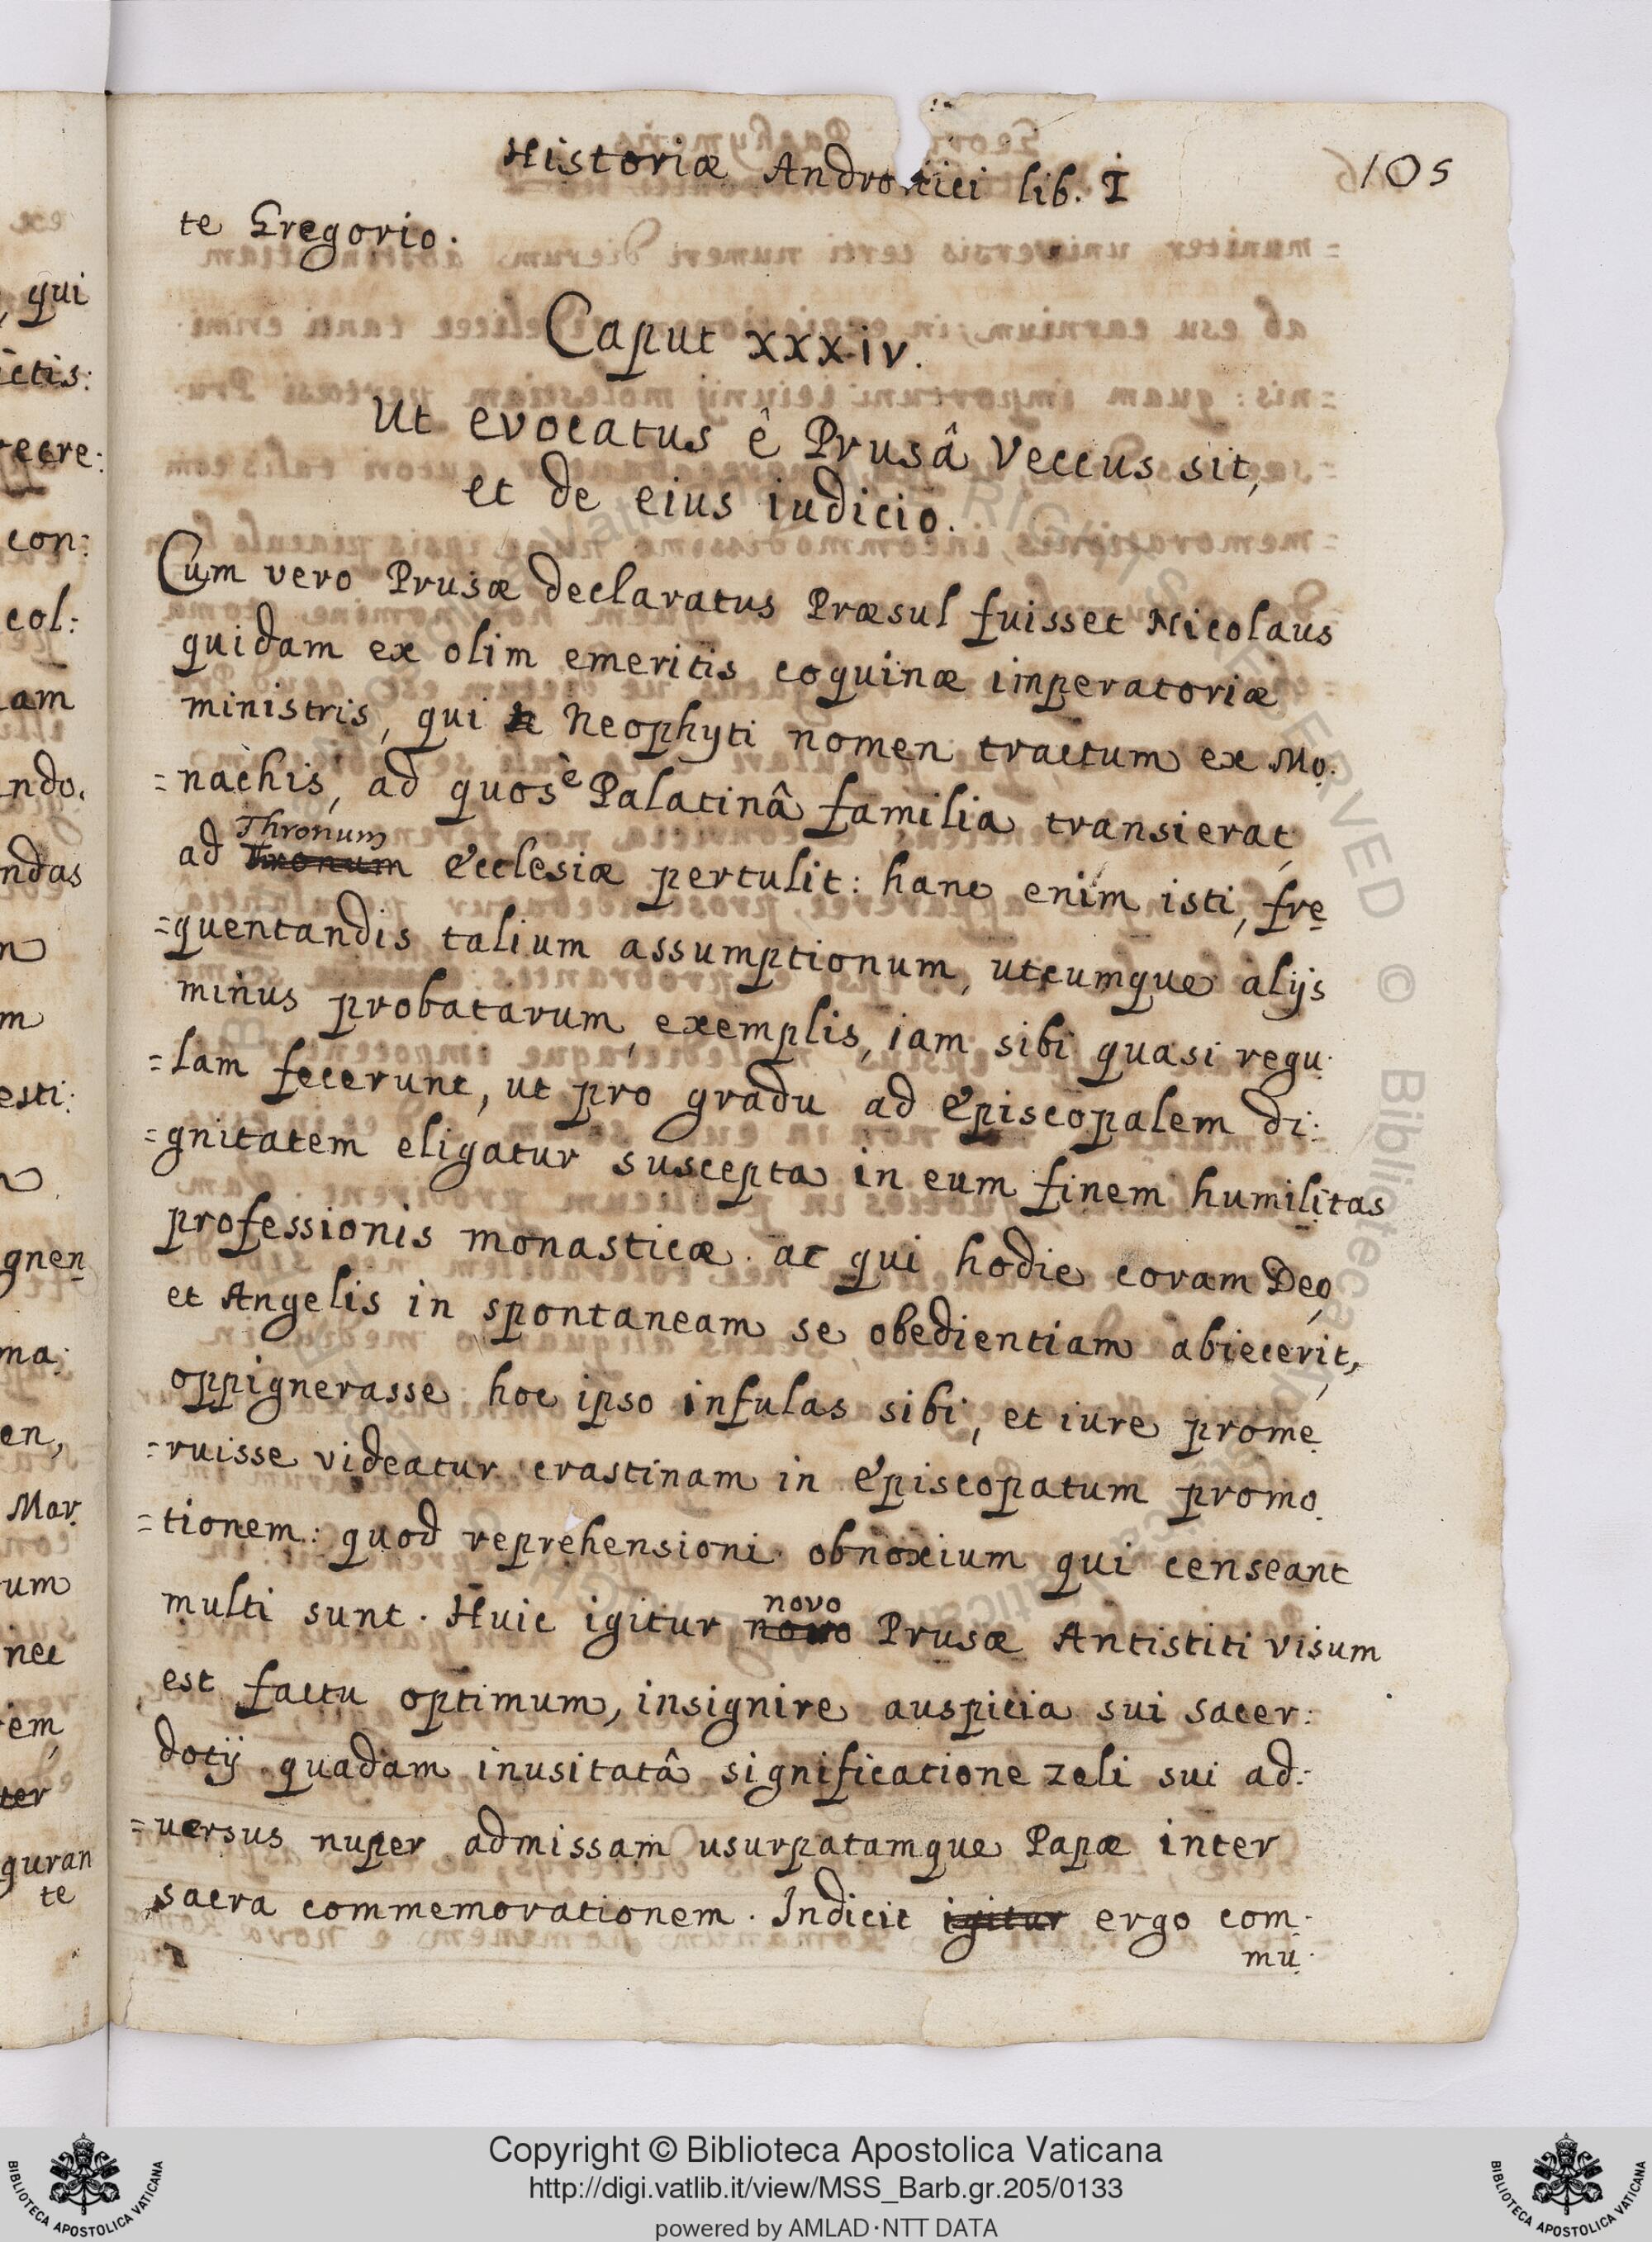 Historiæ Andronici lib. I
105
te Gregorio.
Caput XXXIV.
Ut evocatus ê Prusâ Veccus sit,
et de eius iudicio.
Cum vero Prusæ declaratus Præsul fuisset Nicolaus
quidam ex olim emeritis coquinæ imperatoriæ
ministris, qui Neophyti nomen tractum ex Mo.
=nachis, ad quos è Palatinâ familia transierat,
Thronum
ad Thronum Ecclesiæ pertulit: hanc enim isti, fre
=quentandis talium assumptionum, utcumque alijs
minus probatarum, exemplis, iam sibi quasi regu.
=lam fecerunt, ut pro gradu ad Episcopalem di:
=gnitatem eligatur suscepta in eum finem humilitas
professionis monasticæ. ac qui hodie coram Deo,
et Angelis in spontaneam se obedientiam abiecerit,
oppignerasse hoc ipso infulas sibi, et iure prome
=ruisse videatur crastinam in Episcopatum promo
=tionem: quod reprehensioni obnoxium qui censeant
multi sunt. Huic igitur
novo
novo Prusæ Antistiti visum
est factu optimum, insignire auspicia sui sacer:
dotij quadam inusitatâ significatione zeli sui ad:
=uersus nuper admissam usurpatamque Papæ inter
sacra commemorationem. Indicit igitur ergo com.
mu.
qui
ictis:
con:
col:
iam
ndo.
ndas
m
esti:
gnen
ma:
en,
Mar.
um
nec
em,
ter
guran
te
Copyright © Biblioteca Apostolica Vaticana
http://digi.vatlib.it/view/MSS_Barb.gr.205/0133
powered by AMLAD·NTT DATA
BIBLIOTECA APOSTOLICA VATICANA
BIBLIOTECA APOSTOLICA VATICANA